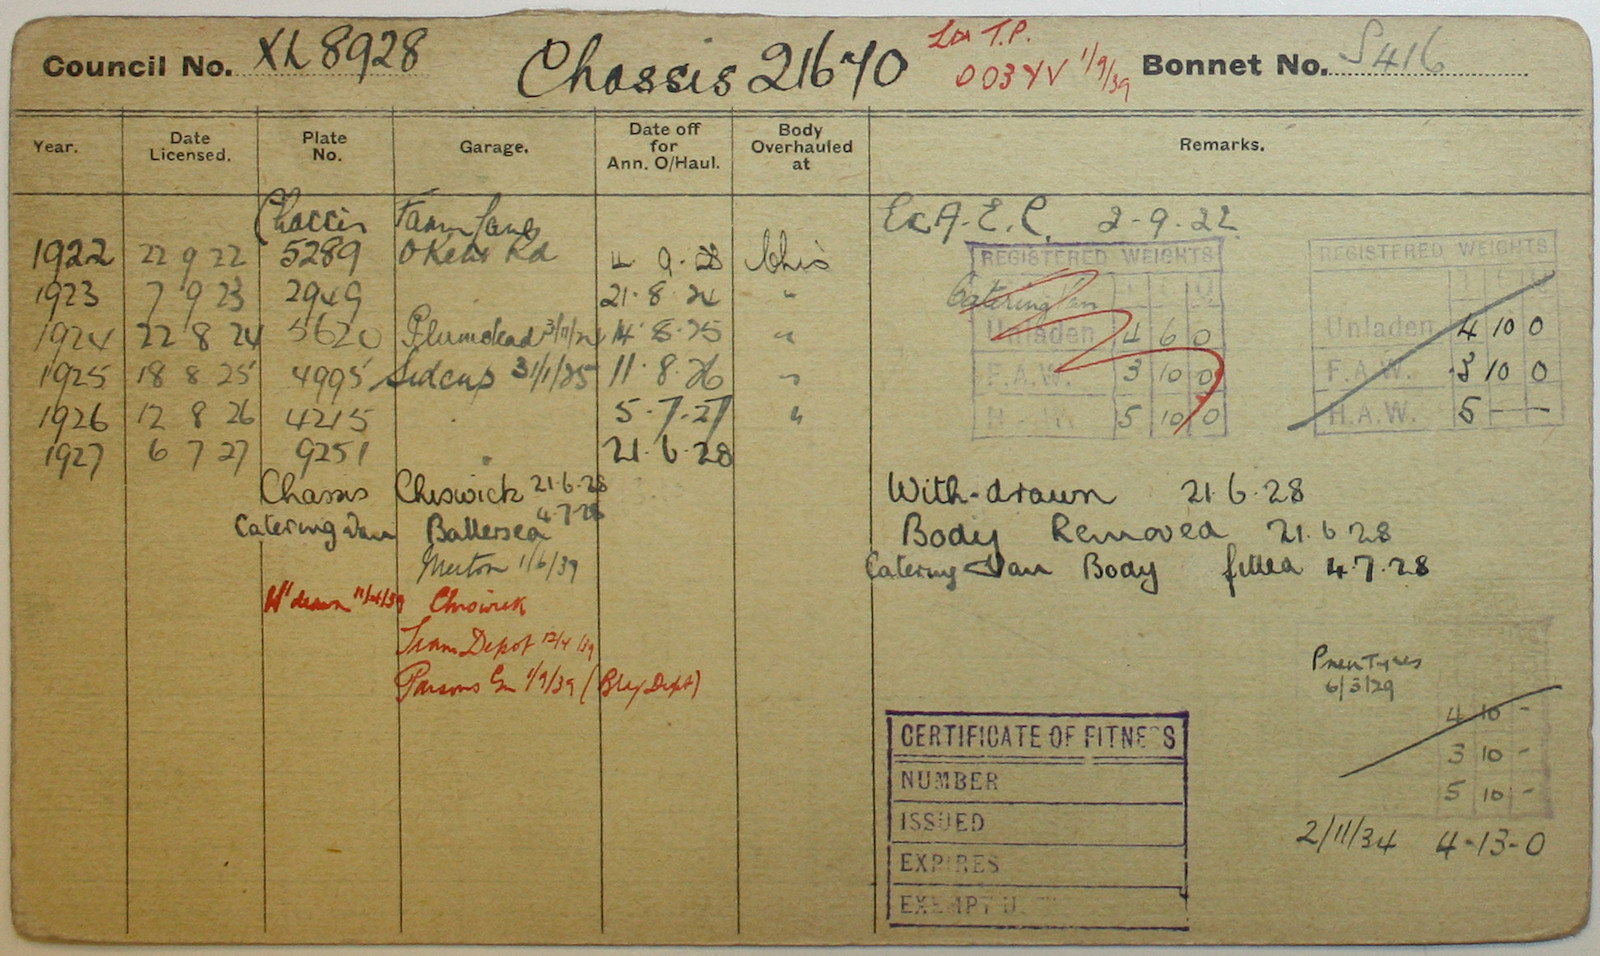 Council No. XL 8928 Chassis 21670 Lon T.P. 003YV 1/9/39 Bonnet No. S416
Year. Date Licensed. Plate No. Garage. Date off for Ann. O/Haul. Body Overhauled at Remarks.
Chassis Farm Lane Ex A.E.C. 2-9-22
1922 22 9 22 5289 Okehs Rd 9.23 Chis
1923 7 9 23 2949 21.8.24 "
1924 22 8 24 5620 Plumstead 3/11/24 14.8.25 "
1925 18 8 25 4995 Sidcup 31/1/25 11.8.26 "
1926 12 8 26 4215 5.7.27 "
1927 6 7 27 9251 21.6.28
REGISTERED WEIGHTS
Catering Van
Unladen 4 6 0
F.A.W. 3 10 0
H 5 10 0
REGISTERED WEIGHTS
Unladen 4 10 0
F.A.W. 3 10 0
H.A.W. 5 - -
Chassis Chiswick 21.6.28 With-drawn 21.6.28
Catering Van Battersea 4.7.28 Body Removed 21.6.28
Merton 1/6/39 Catering Van Body fitted 4.7.28
W'drawn Chiswick
Tram Depot 12/4/39
Parsons Gn 1/9/39 (Bly Dept)
Pneu Tyres
6/3/29
4 10 -
3 10 -
5 10 -
2/11/34 4-13-0
CERTIFICATE OF FITNESS
NUMBER
ISSUED
EXPIRES
EXEMPT U